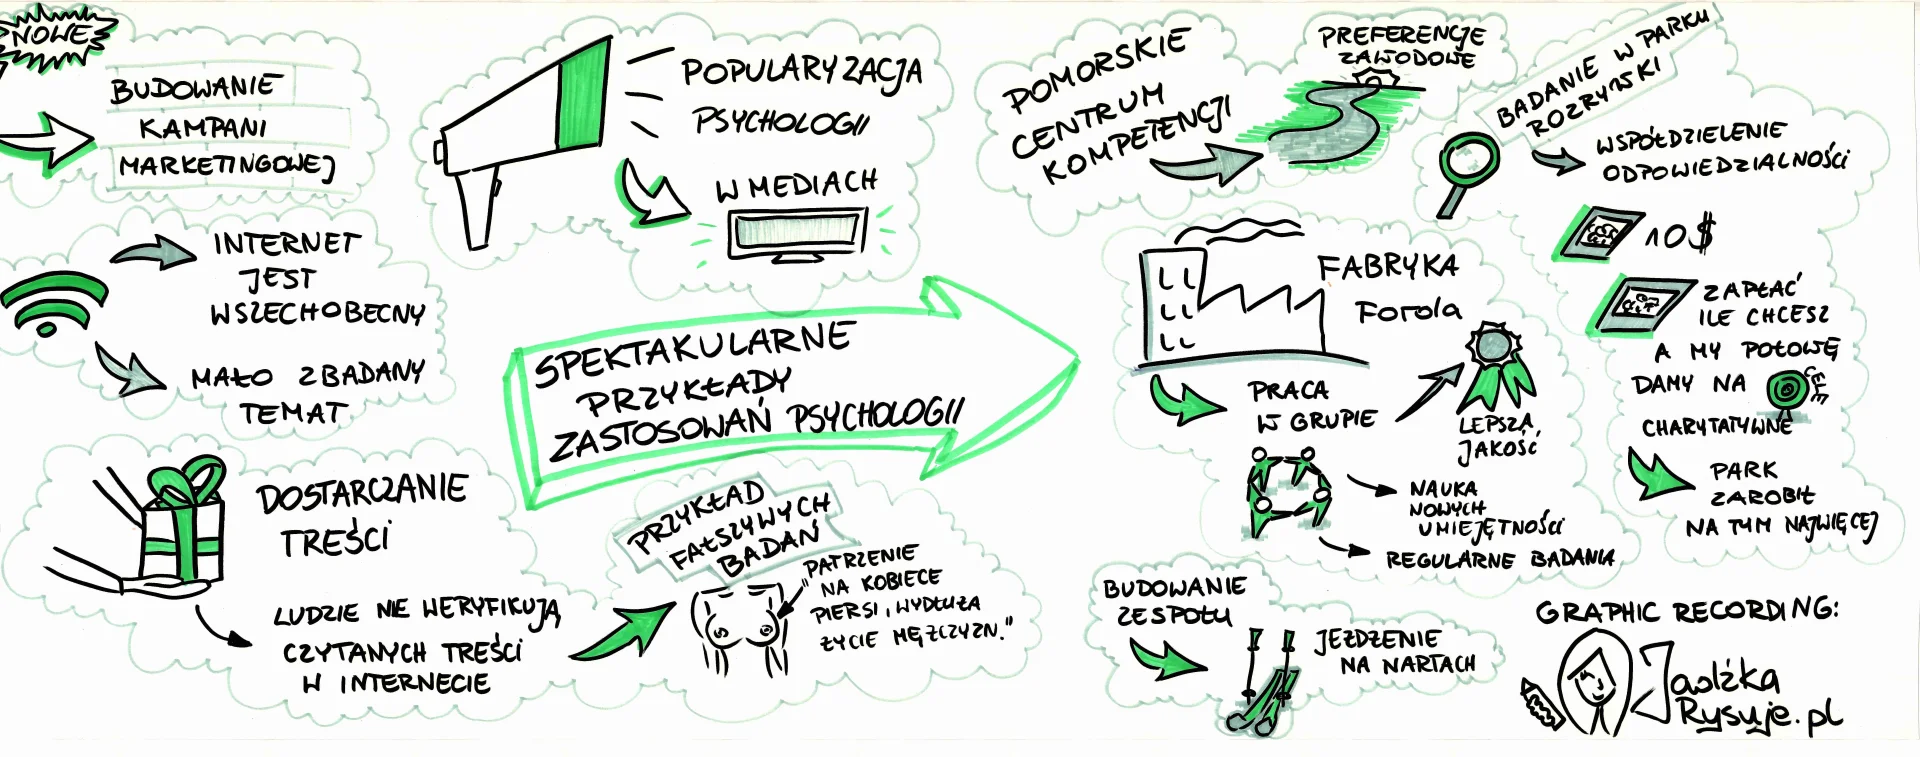 NOWE
BUDOWANIE
KAMPANI
MARKETINGOWEJ
INTERNET
JEST
WSZECHOBECNY
MAŁO ZBADANY
TEMAT
DOSTARCZANIE
TREŚCI
LUDZIE NIE WERYFIKUJĄ
CZYTANYCH TREŚCI
W INTERNECIE
POPULARYZACJA
PSYCHOLOGII
W MEDIACH
SPEKTAKULARNE
PRZYKŁADY
ZASTOSOWAŃ PSYCHOLOGII
PRZYKŁAD
FAŁSZYWYCH
BADAŃ
"PATRZENIE
NA KOBIECE
PIERSI, WYDŁUŻA
ŻYCIE MĘŻCZYZN."
POMORSKIE
CENTRUM
KOMPETENCJI
PREFERENCJE
ZAWODOWE
FABRYKA
Forda
PRACA
W GRUPIE
LEPSZĄ
JAKOŚĆ
NAUKA
NOWYCH
UMIEJĘTNOŚCI
REGULARNE BADANIA
BUDOWANIE
ZESPOŁU
JEŻDŻENIE
NA NARTACH
BADANIE W PARKU
ROZRYWSKI
WSPÓŁDZIELENIE
ODPOWIEDZIALNOŚCI
10$
ZAPŁAĆ
ILE CHCESZ
A MY POŁOWĘ
DAMY NA CELE
CHARYTATYWNE
PARK
ZAROBIŁ
NA TYM NAJWIĘCEJ
GRAPHIC RECORDING:
Jadźka
Rysuje.pl